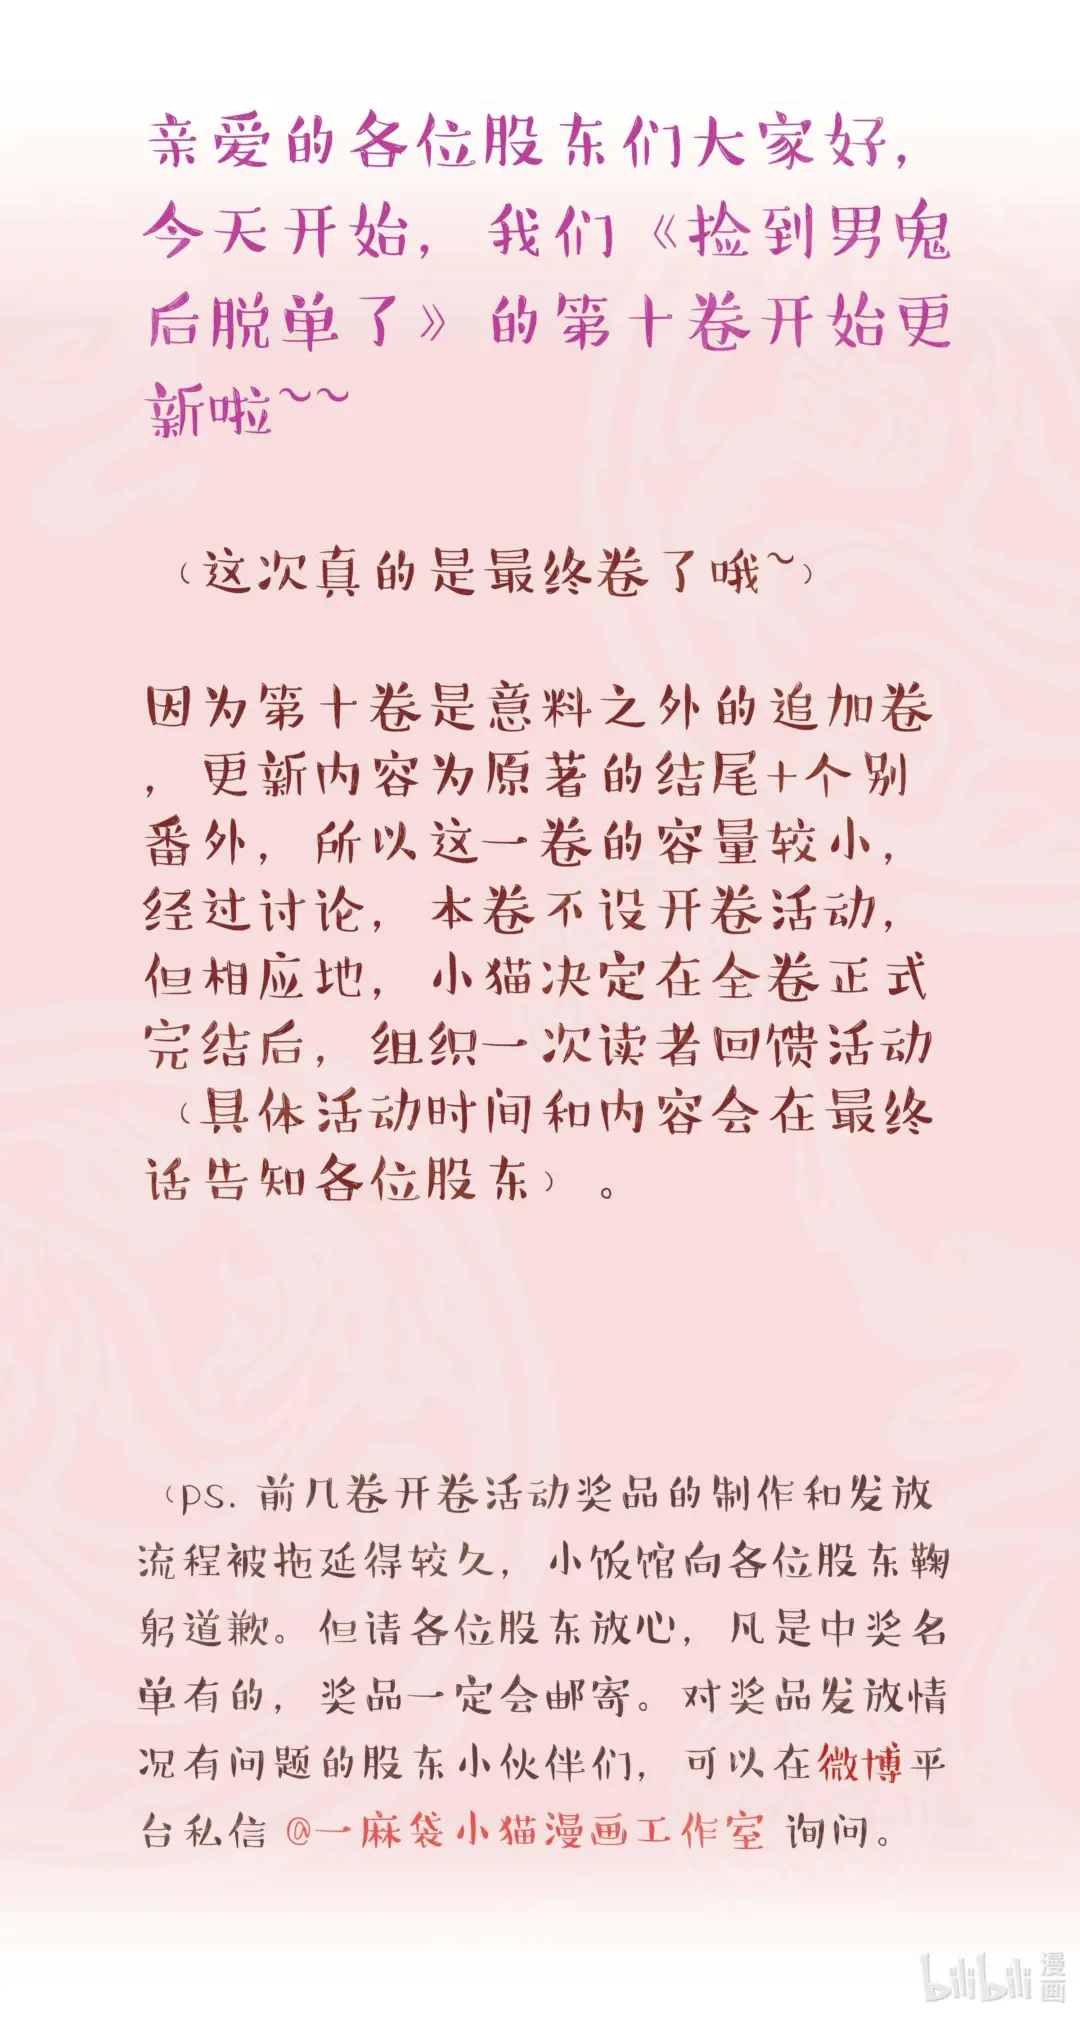 亲爱的各位股东们大家好，
今天开始，我们《捡到男鬼
后脱单了》的第十卷开始更
新啦~~
（这次真的是最终卷了哦~）
因为第十卷是意料之外的追加卷
，更新内容为原著的结尾+个别
番外，所以这一卷的容量较小，
经过讨论，本卷不设开卷活动，
但相应地，小猫决定在全卷正式
完结后，组织一次读者回馈活动
（具体活动时间和内容会在最终
话告知各位股东）。
（ps. 前几卷开卷活动奖品的制作和发放
流程被拖延得较久，小饭馆向各位股东鞠
躬道歉。但请各位股东放心，凡是中奖名
单有的，奖品一定会邮寄。对奖品发放情
况有问题的股东小伙伴们，可以在微博平
台私信 @一麻袋小猫漫画工作室 询问。
bilibili 漫画